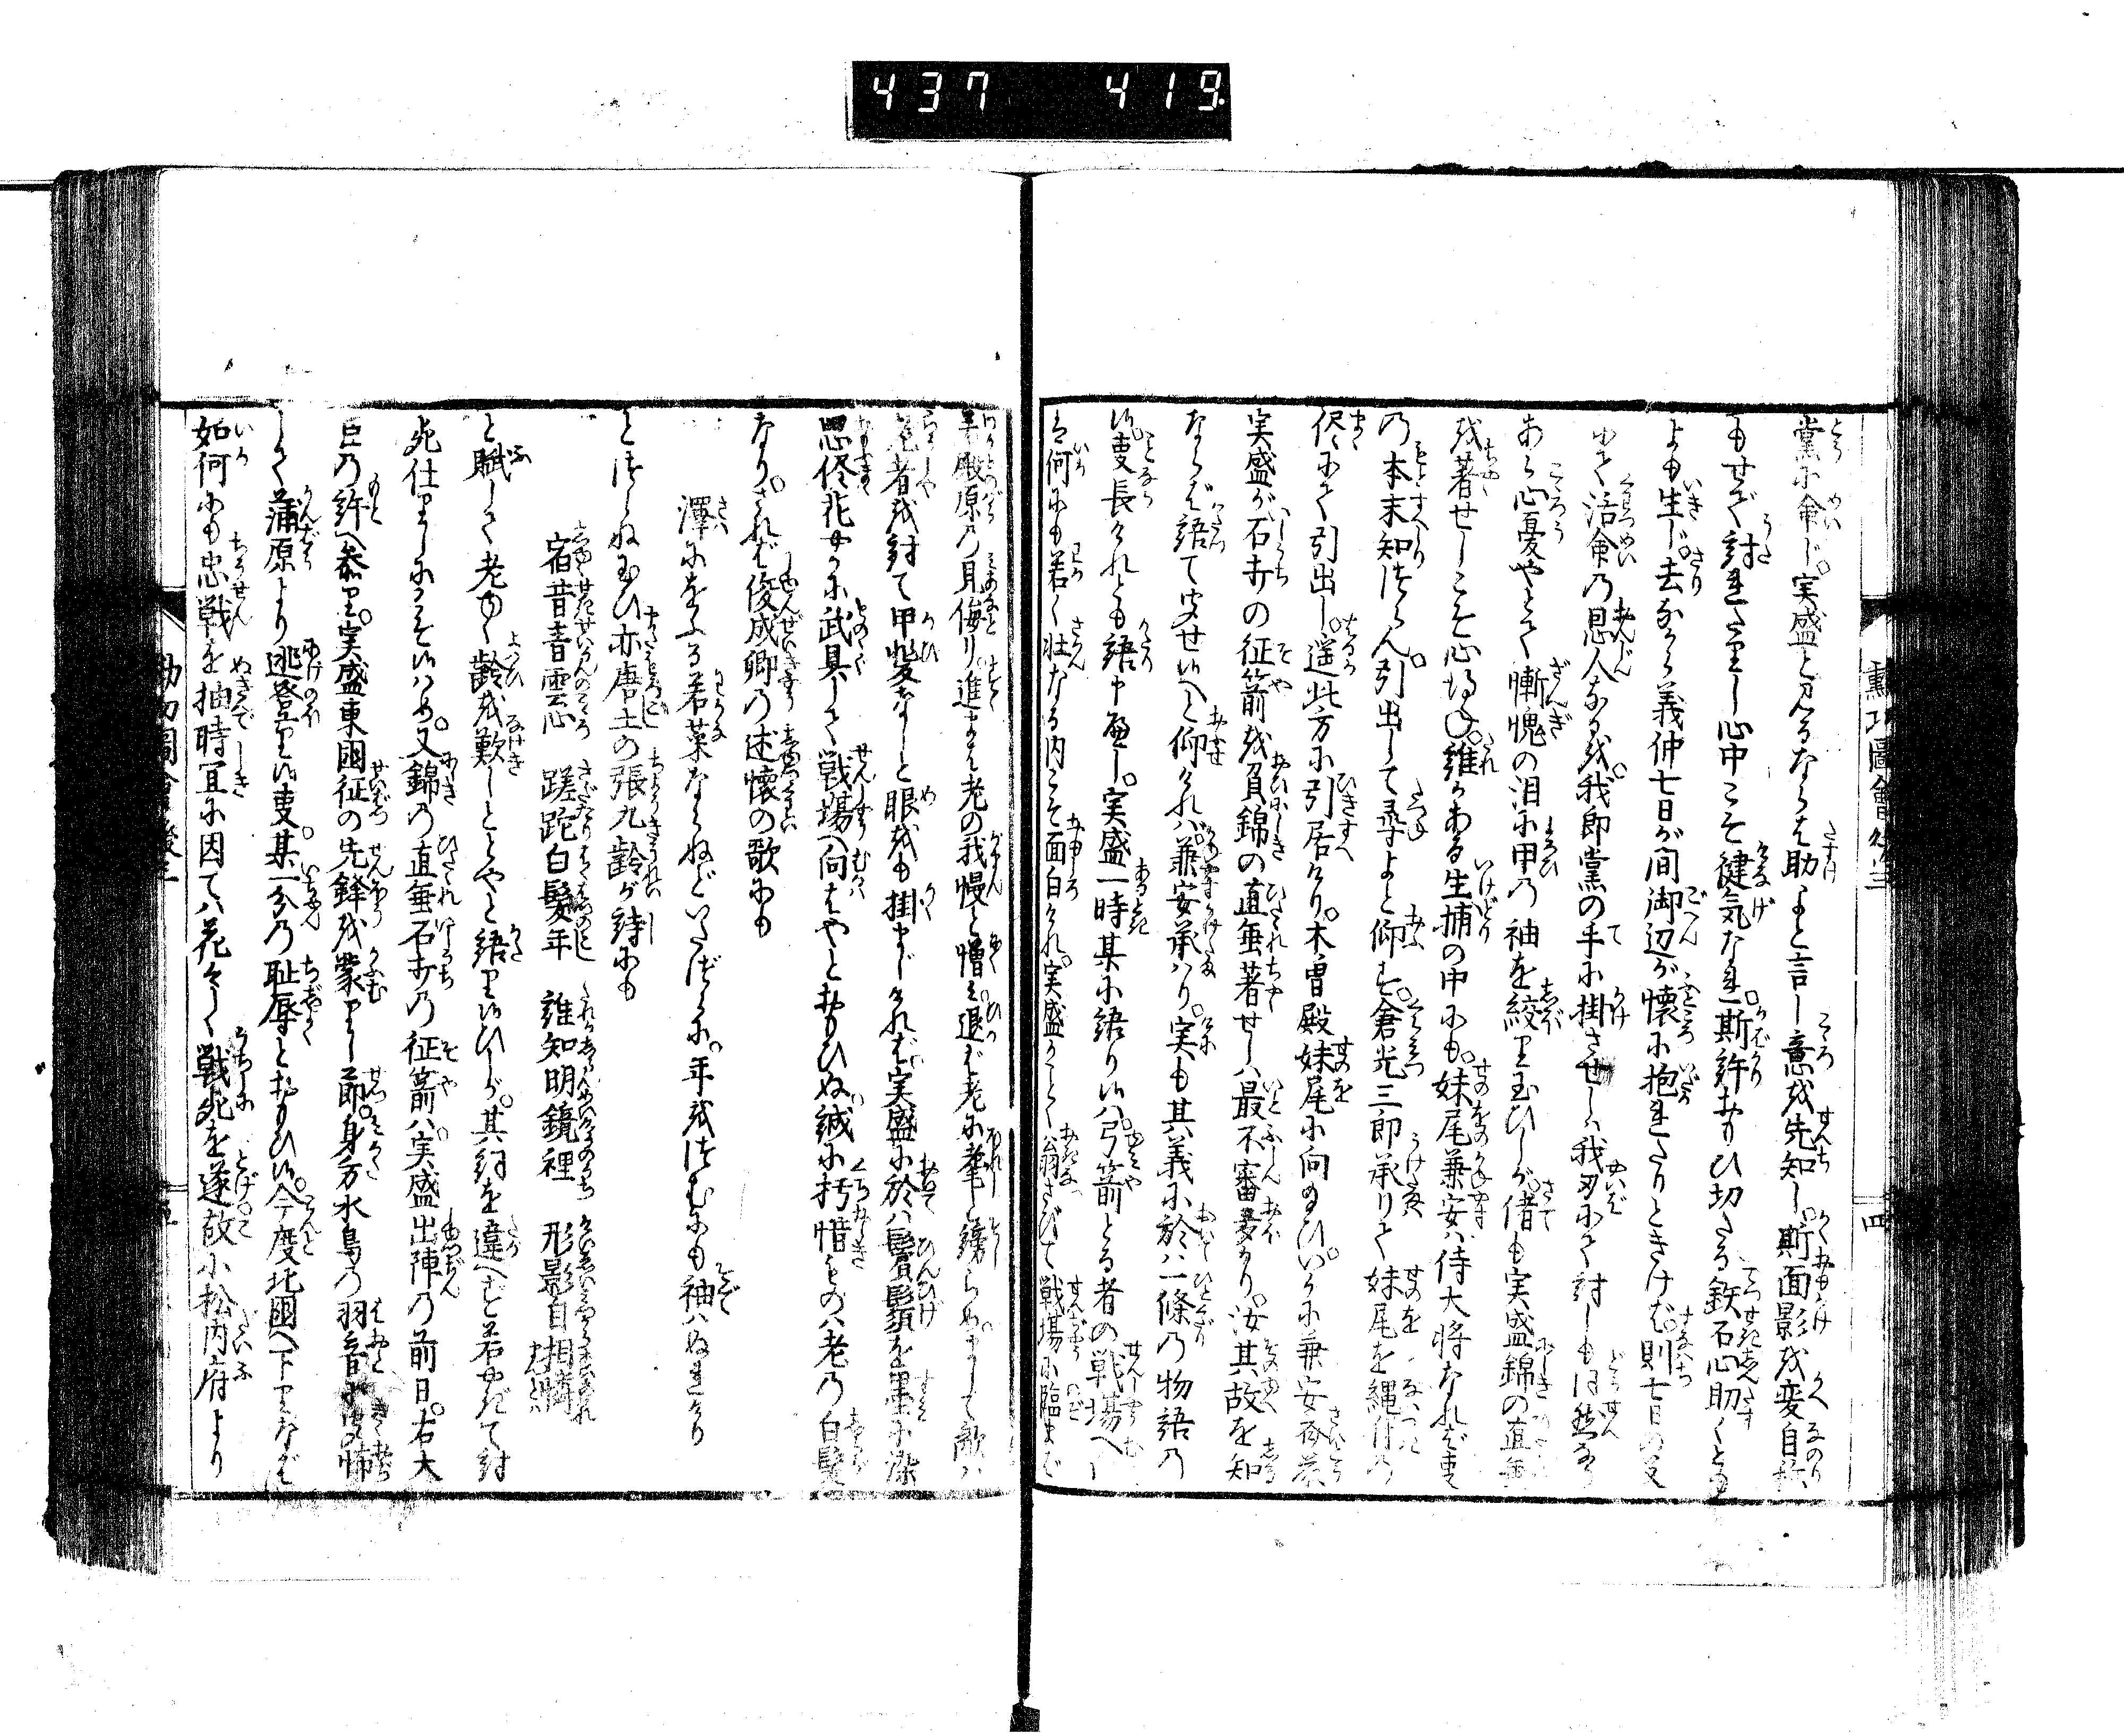 437 419
黨に命じ。実盛と見るならば助よと言し意を先知し。斯面影を変自称
もせで討れたりし心中こそ健気なれ。斯許おもひ切たる鉄石心助くとも
よも生じ。去ながら義仲七日が間御辺が懐に抱れたりときけば。則七日の父
にて活命の恩人なるを。我郎党の手に掛させしは我刃にて討しも同然なり
あら心憂やとて。慚愧の泪に甲の袖を絞り玉ひしが。偖も実盛錦の直垂
を著せしこそ心得ね。誰かある生捕の中にも。妹尾兼安は侍大将なれば事
の本末知つらん。引出して尋よと仰す。倉光三郎承りて妹尾を縄付の
侭にて引出し。遥此方に引居けり。木曽殿妹尾に向ひ。いかに兼安斎藤
実盛が石打の征箭を負錦の直垂著せしは最不審多り。汝其故を知
ならば語て聞せ候へと仰ければ。兼安承はり。実も其義に於は一條の物語の
候。事長けれども語申べし。実盛一時某に語り候は。弓箭とる者の戦場へ
は何にも若く壮なる内こそ面白けれ。実盛がごとく翁さびて戦場に臨まば
若殿原の見侮り。進まば老の我慢と憎み。退ば老に耄しと嘲らめ。まして敵は
老者を討て甲斐なしと眼をも掛まじければ。実盛に於は鬢鬚を墨に染
思侭花やかに武具して戦場へ向はやとおもひぬ。誠に朽惜ものは老の白髪
なり。されば俊成卿の述懐の歌にも
澤におふる若菜ならねどいたづらに。年をつむにも袖はぬれけり
とつらね玉ひ。亦唐土の張九齢が詩にも
宿昔青雲志 蹉跎白髪年 誰知明鏡裡 形影自相憐
と賦して老ゆく齢を歎しとや。と語り候ひしが。其詞を違へず若やぎて討
死仕りしにこそ候はめ。又錦の直垂石打の征箭は。実盛出陣の前日。右大
臣の許へ参り。実盛東國征の先鋒を蒙りし節。身方水鳥の羽音に怖
して蒲原より逃登り候事。某一分の恥辱とおもひ候。今度北國へ下りなば
如何にも忠戦を抽時宜に因ては花々しく戦死を遂。故小松内府より